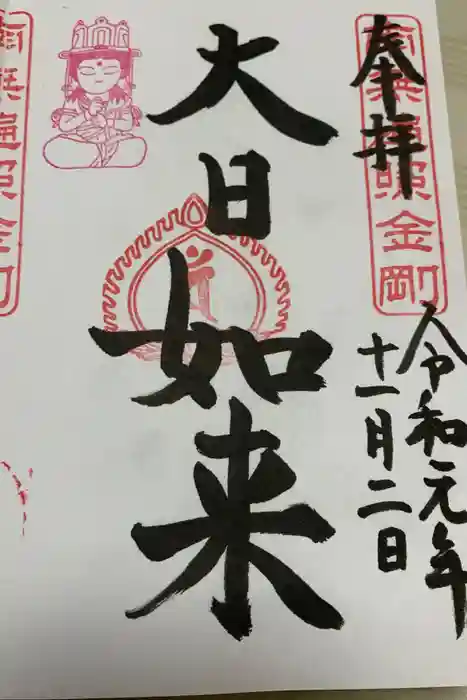 奉拝
南無遍照金剛
令和元年
十一月二日
大日如来
南無遍照金剛